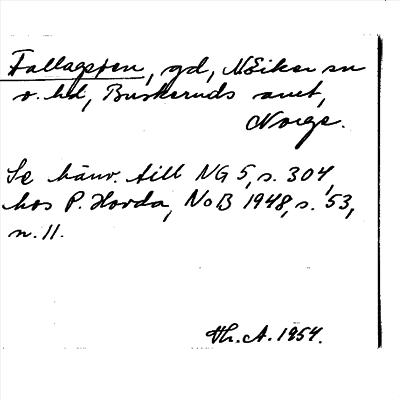 Fallagsjon, gd, N.Eiker sn
o. hd, Buskeruds amt,
Norge.
Se hänv. till NG 5, s. 304,
hos P. Hovda, NoB 1948, s. 53,
n. 11.
Th. A. 1954.